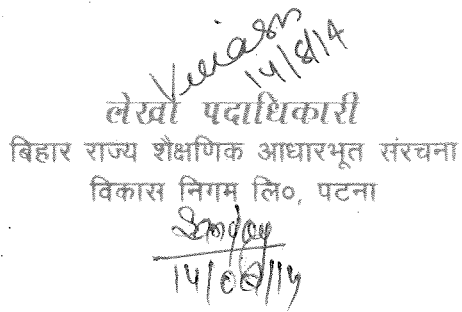 14/8/14
लेखा पदाधिकारी
बिहार राज्य शैक्षणिक आधारभूत संरचना
विकास निगम लि०, पटना
14/08/14